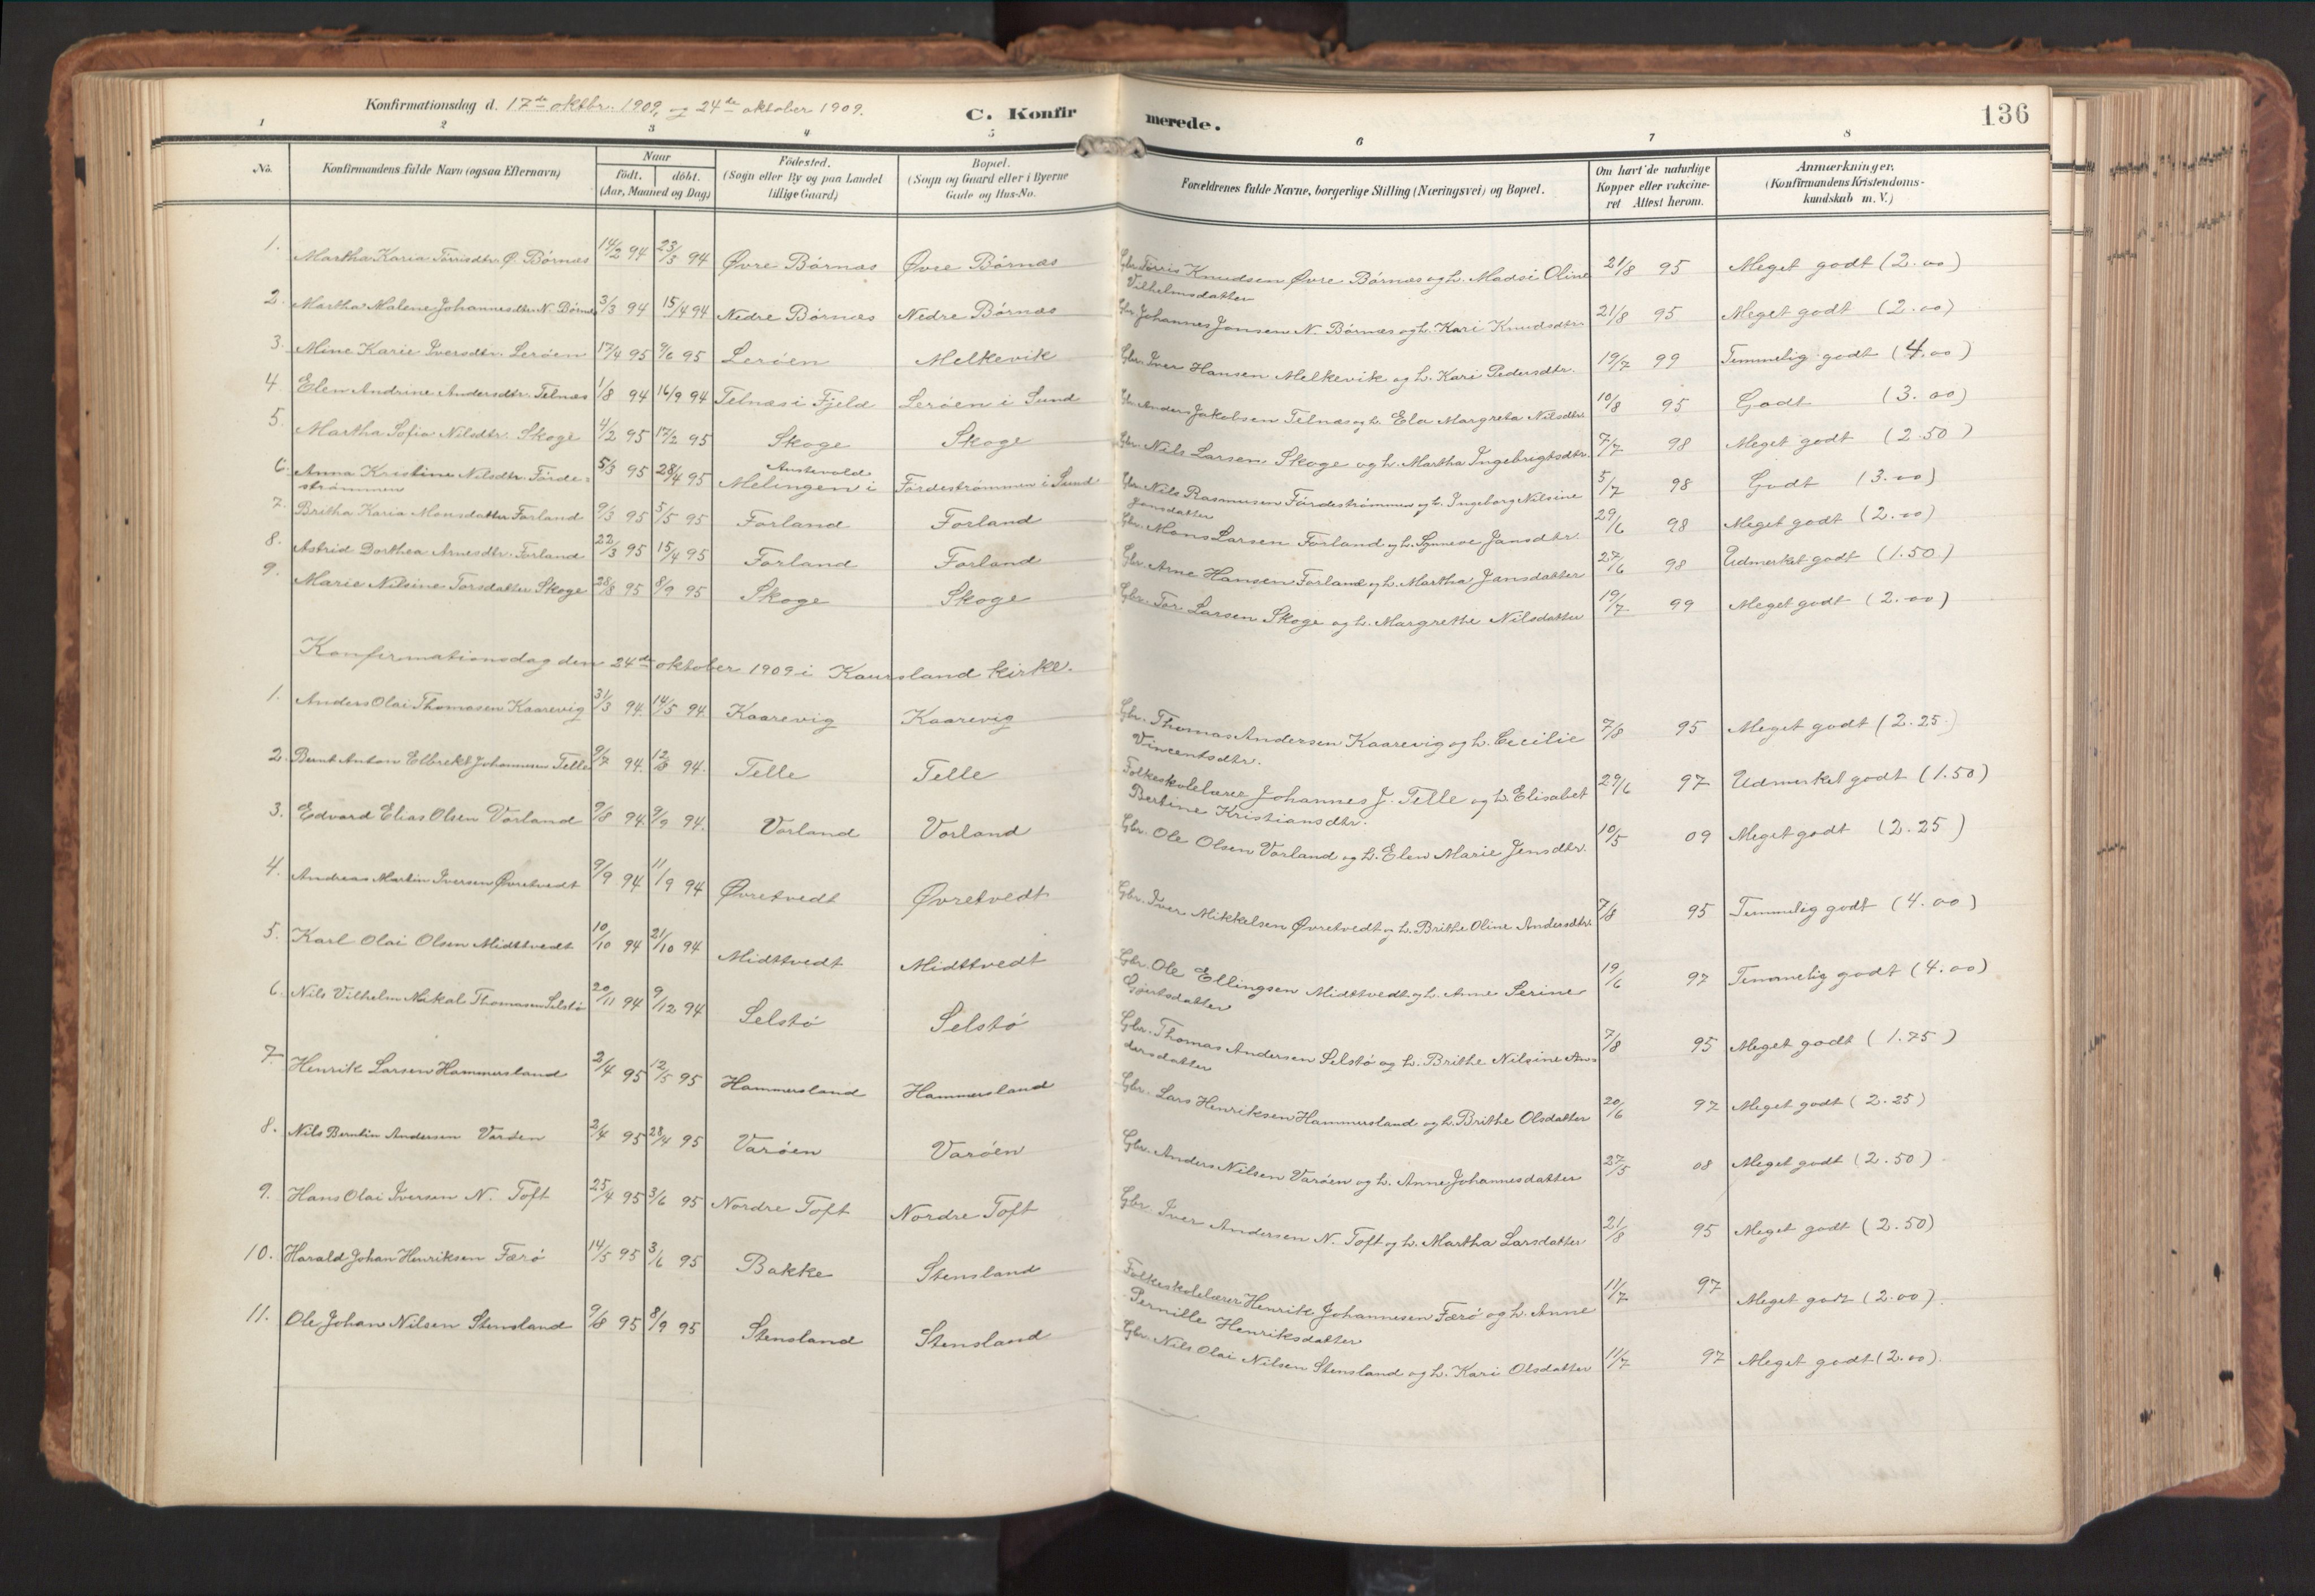 Konfirmationsdag d. 17de oktbr. 1909, og 24de oktober 1909.
C. Konfirmerede.
136
1 2 3 4 5 6 7 8
No.
Konfirmandens fulde Navn (ogsaa Efternavn)
Naar
födt. döbt.
(Aar, Maaned og Dag)
Födested.
(Sogn eller By og paa Landet
tillige Gaard)
Bopæl.
(Sogn og Gaard eller i Byerne
Gade og Hus-No.
Forældrenes fulde Navne, borgerlige Stilling (Næringsvei) og Bopæl.
Om havt de naturlige
Kopper eller vakcine-
ret Attest herom.
Anmærkninger.
(Konfirmandens Kristendoms-
kundskab m. V.)
1. Martha Karia Törrisdtr. Ø. Börnæs 14/2 94 23/3 94 Øvre Börnæs Øvre Börnæs Gbr. Törris Knudsen Øvre Börnæs og h. Madsi Oline 21/8 95 Meget godt (2.00)
Vilhelmsdatter
2. Martha Malene Johannesdtr. N. Börnæs 3/3 94 15/4 94 Nedre Börnæs Nedre Börnæs Gbr. Johannes Jonsen N. Börnæs og h. Kari Knudsdtr. 21/8 95 Meget godt (2.00)
3. Mine Karie Iversdtr. Leröen 17/4 95 9/6 95 Leröen Melkevik Gbr. Iver Hansen Melkevik og h. Kari Pedersdtr. 19/7 99 Temmelig godt (4.00)
4. Elen Andrine Andersdtr. Telnæs 1/8 94 16/9 94 Telnæs i Fjeld Leröen i Sund Gbr. Anders Jakobsen Telnæs og h. Ela Margreta Nilsdtr. 10/8 95 Godt (3.00)
5. Martha Sofia Nilsdtr. Skoge 4/2 95 17/2 95 Skoge Skoge Gbr. Nils Larsen Skoge og h. Martha Ingebrigtsdtr. 7/7 98 Meget godt (2.50)
6. Anna Kristine Nilsdtr. Förde= 5/3 95 28/4 95 Melingen i Austevold Fördeströmmen i Sund Gbr. Nils Rasmussen Fördeströmmen og h. Ingeborg Nilsine 5/7 98 Godt (3.00)
strömmen Jansdatter
7. Britha Karia Monsdatter Forland 9/3 95 5/5 95 Forland Forland Gbr. Mons Larsen Forland og h. Synneve Jansdtr. 29/6 98 Meget godt (2.00)
8. Astrid Dorthea Arnesdtr. Forland 22/3 95 15/4 95 Forland Forland Gbr. Arne Hansen Forland og h. Martha Jansdatter 27/6 98 Udmerket godt (1.50)
9. Marie Nilsine Torsdatter Skoge 28/8 95 8/9 95 Skoge Skoge Gbr. Tor Larsen Skoge og h. Margrethe Nilsdatter 19/7 99 Meget godt (2.00)
Konfirmationsdag den 24de oktober 1909 i Kausland kirke.
1. Anders Olai Thomasen Kaarevig 31/3 94. 14/5 94. Kaarevig Kaarevig Gbr. Thomas Andersen Kaarevig og h. Cecilie 7/8 95 Meget godt (2.25)
Vincentsdtr.
2. Bernt Anton Elbrekt Johannesen Telle 9/7 94. 12/8 94. Telle Telle Folkeskolelærer Johannes J. Telle og h. Elisabet 29/6 97 Udmerket godt (1.50)
Bertine Kristiansdtr.
3. Edvard Elias Olsen Vorland 9/8 94. 9/9 94. Vorland Vorland Gbr. Ole Olsen Vorland og h. Elen Marie Jensdtr. 10/5 09 Meget godt (2.25)
4. Andreas Martin Iversen Øvretvedt 9/9 94 11/9 94 Øvretvedt Øvretvedt Gbr. Iver Mikkelsen Øvretvedt og h. Brithe Oline Andersdtr. 7/8 95 Temmelig godt (4.00)
5. Karl Olai Olsen Midttvedt 10/10 94 21/10 94 Midttvedt Midttvedt Gbr. Ole Ellingsen Midttvedt og h. Anne Serine 19/6 97 Temmelig godt (4.00)
Gjertsdatter
6. Nils Vilhelm Mikal Thomasen Selstö 20/11 94 9/12 94 Selstö Selstö Gbr. Thomas Andersen Selstö og h. Brithe Nilsine An= 7/8 95 Meget godt (1.75)
dersdatter
7. Henrik Larsen Hammersland 2/4 95 12/5 95 Hammersland Hammersland Gbr. Lars Henriksen Hammersland og h. Brithe Olsdatter 20/6 97 Meget godt (2.25)
8. Nils Berntin Andersen Varöen 2/4 95 28/4 95 Varöen Varöen Gbr. Anders Nilsen Varöen og h. Anne Johannesdatter 27/5 08 Meget godt (2.50)
9. Hans Olai Iversen N. Toft 25/4 95 3/6 95 Nordre Toft Nordre Toft Gbr. Iver Andersen N. Toft og h. Martha Larsdatter 21/8 95 Meget godt (2.50)
10. Harald Johan Henriksen Færö 14/5 95 3/6 95 Bakke Stensland Folkeskolelærer Henrik Johannesen Færö og h. Anne 11/7 97 Meget godt (2.00).
Pernille Henriksdatter
11. Ole Johan Nilsen Stensland 9/8 95 8/9 95 Stensland Stensland Gbr. Nils Olai Nilsen Stensland og h. Kari Olsdatter 11/7 97 Meget godt (2.00).